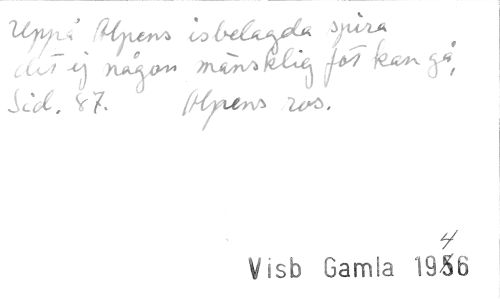 Uppå Alpens isbelagda spira
dit ej någon mänsklig fot kan gå,
Sid. 87. Alpens ros.
4
Visb Gamla 1956